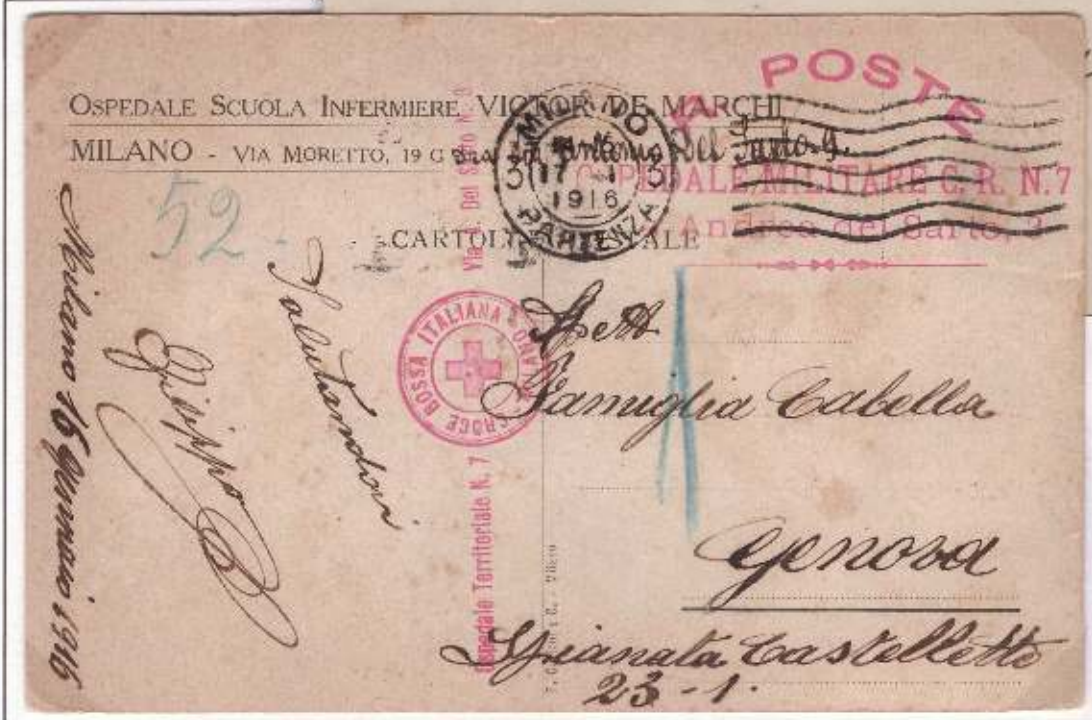 POSTE
OSPEDALE SCUOLA INFERMIERE VICTOR DE MARCHI
MILANO - VIA MORETTO, 19
Del Sarto
OSPEDALE MILITARE C. R. N. 7
Andrea del Sarto, 3
MILANO
17 1
1916
PARTENZA
3 3
52
CARTOLINA POSTALE
CROCE ROSSA ITALIANA COM. MILANO
Ospedale Territoriale N. 7 Via A. Del Sarto N. 3
Milano 16 gennaio 1916
Salutandovi
Gippo
1
Spett
Famiglia Cabella
Genova
Spianata Castelletto
23-1.